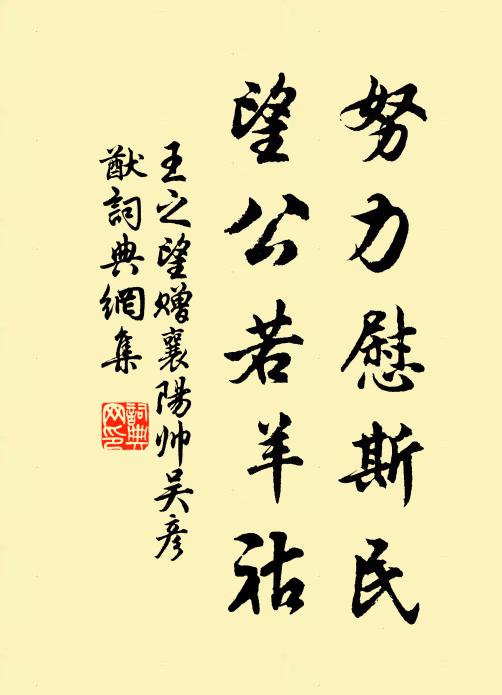 努力慰斯民
望公若羊祜
王之望赠襄陽帅吴彦
猷詞典網集
詞典
网印